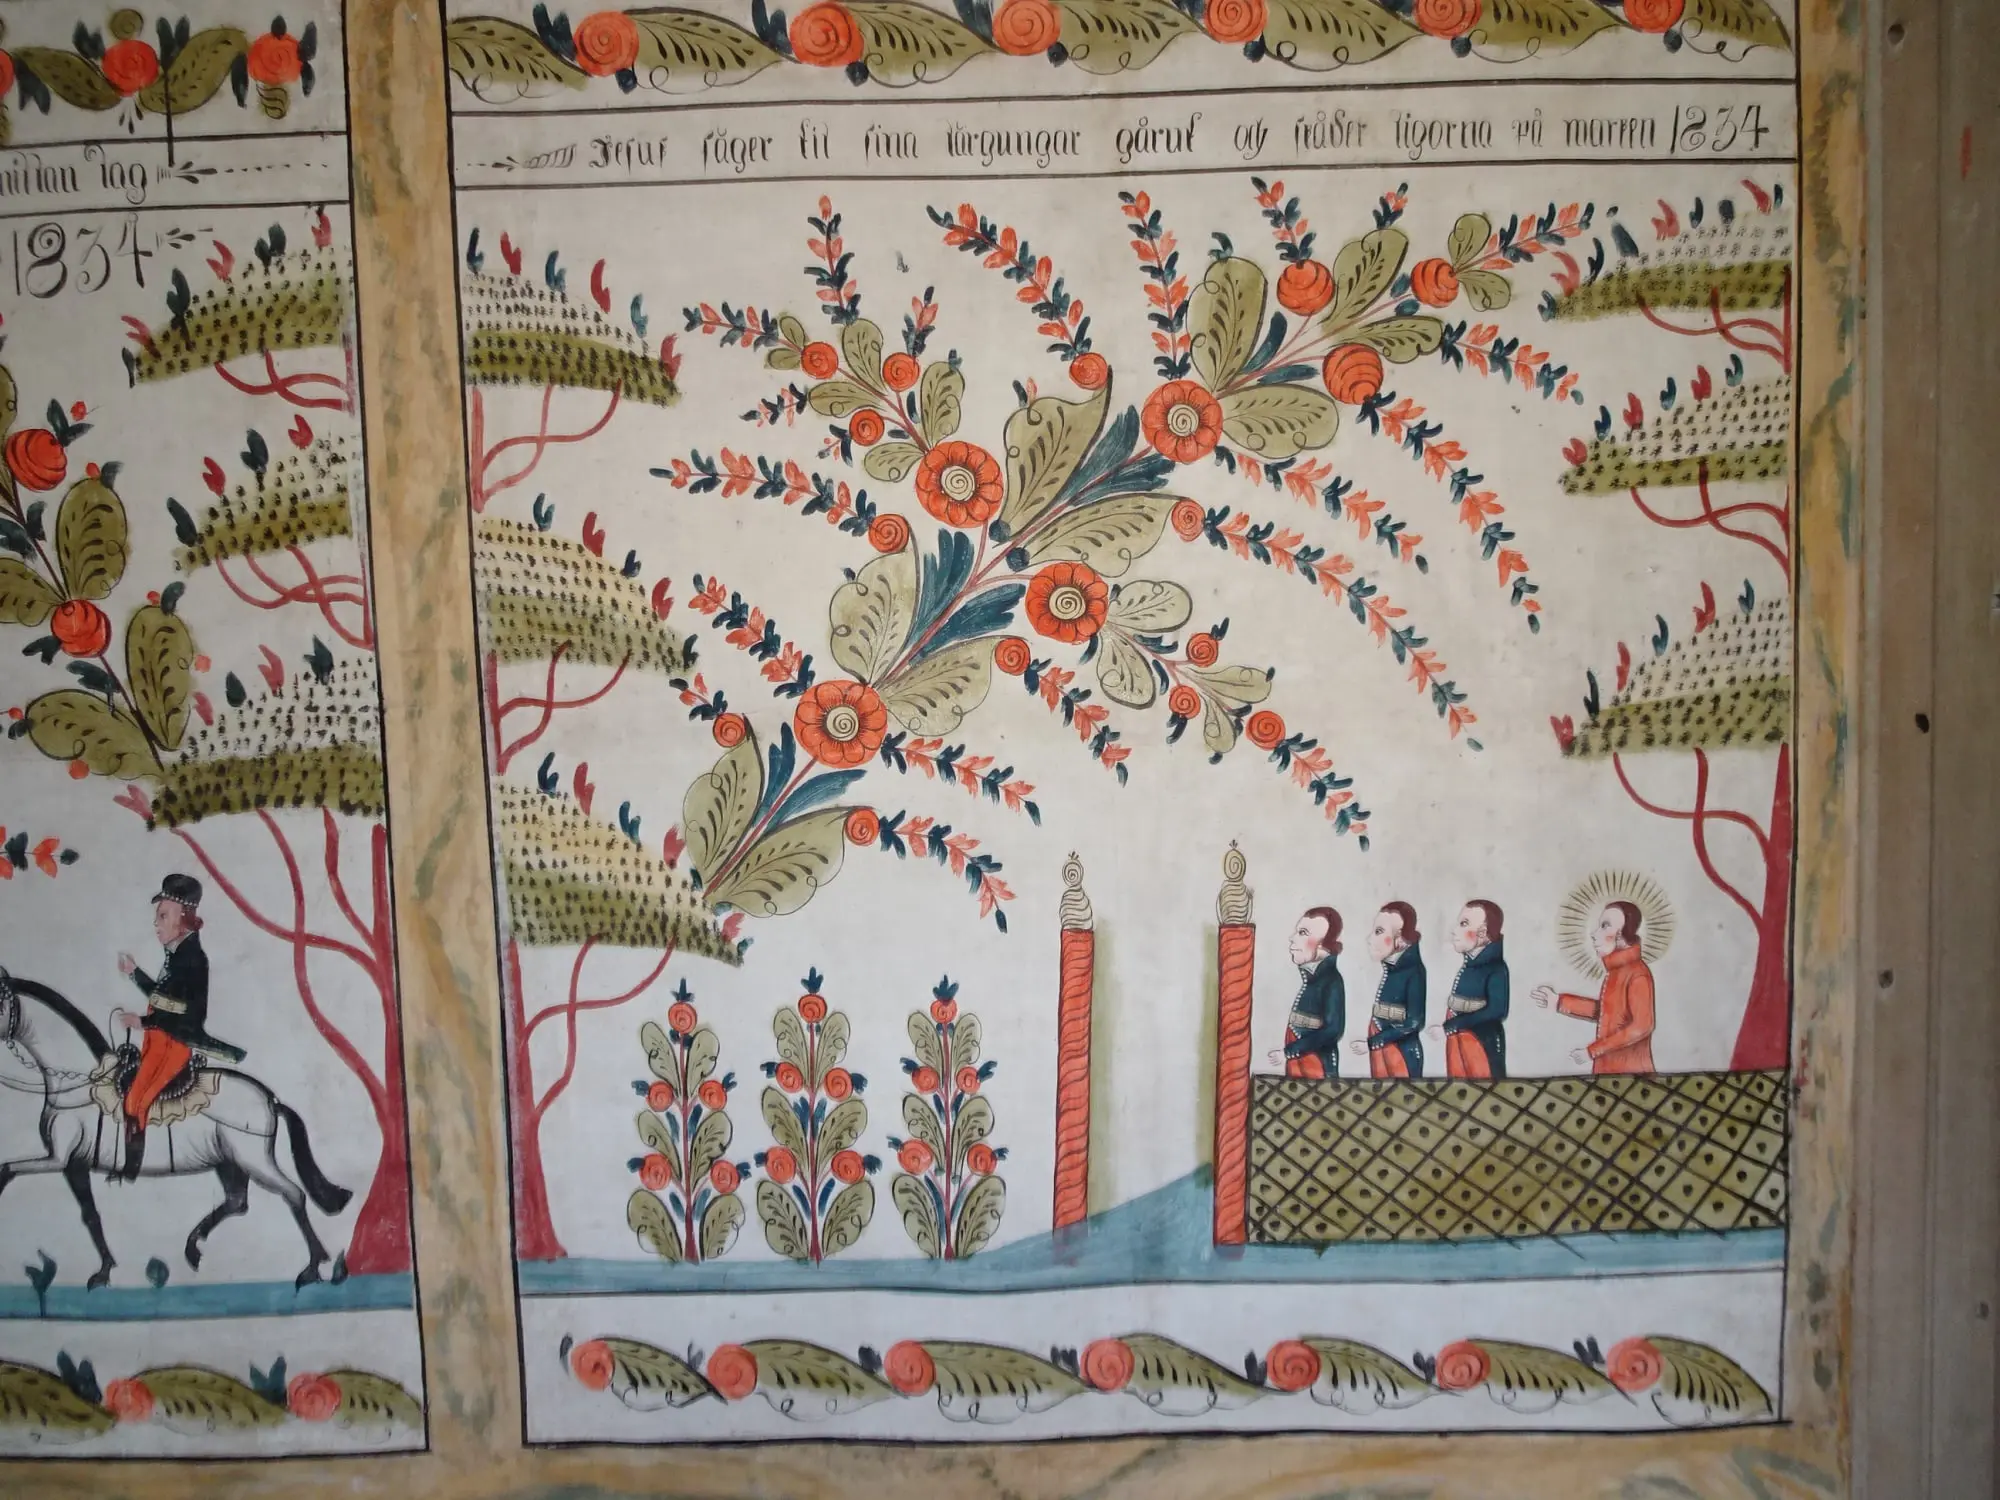 nittan dag
1834
Jesus säger til sina lärgungar gårut og skåder ligorna på marken 1834